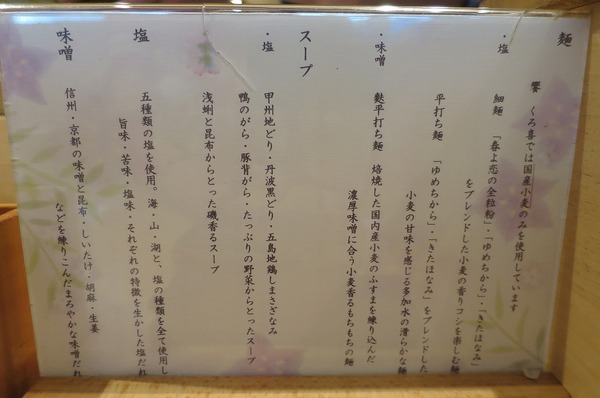 麺
饗 くろ㐂では国産小麦のみを使用しています
・塩
細麺 「春よ恋の全粒粉」・「ゆめちから」・「きたほなみ」
をブレンドした小麦の香りコシを楽しむ麺
平打ち麺 「ゆめちから」・「きたほなみ」をブレンドした
小麦の甘味を感じる多加水の滑らかな麺
・味噌
麩平打ち麺 焙焼した国内産小麦のふすまを練り込んだ
濃厚味噌に合う小麦香るもちもちの麺
スープ
・塩
甲州地どり・丹波黒どり・五島地鶏しまさざなみ
鴨のがら・豚背がら・たっぷりの野菜からとったスープ
浅蜊と昆布からとった磯香るスープ
塩
五種類の塩を使用。海・山・湖と、塩の種類を全て使用し
旨味・苦味・塩味・それぞれの特徴を生かした塩だれ
味噌
信州・京都の味噌と昆布・しいたけ・胡麻・生姜
などを練りこんだまろやかな味噌だれ